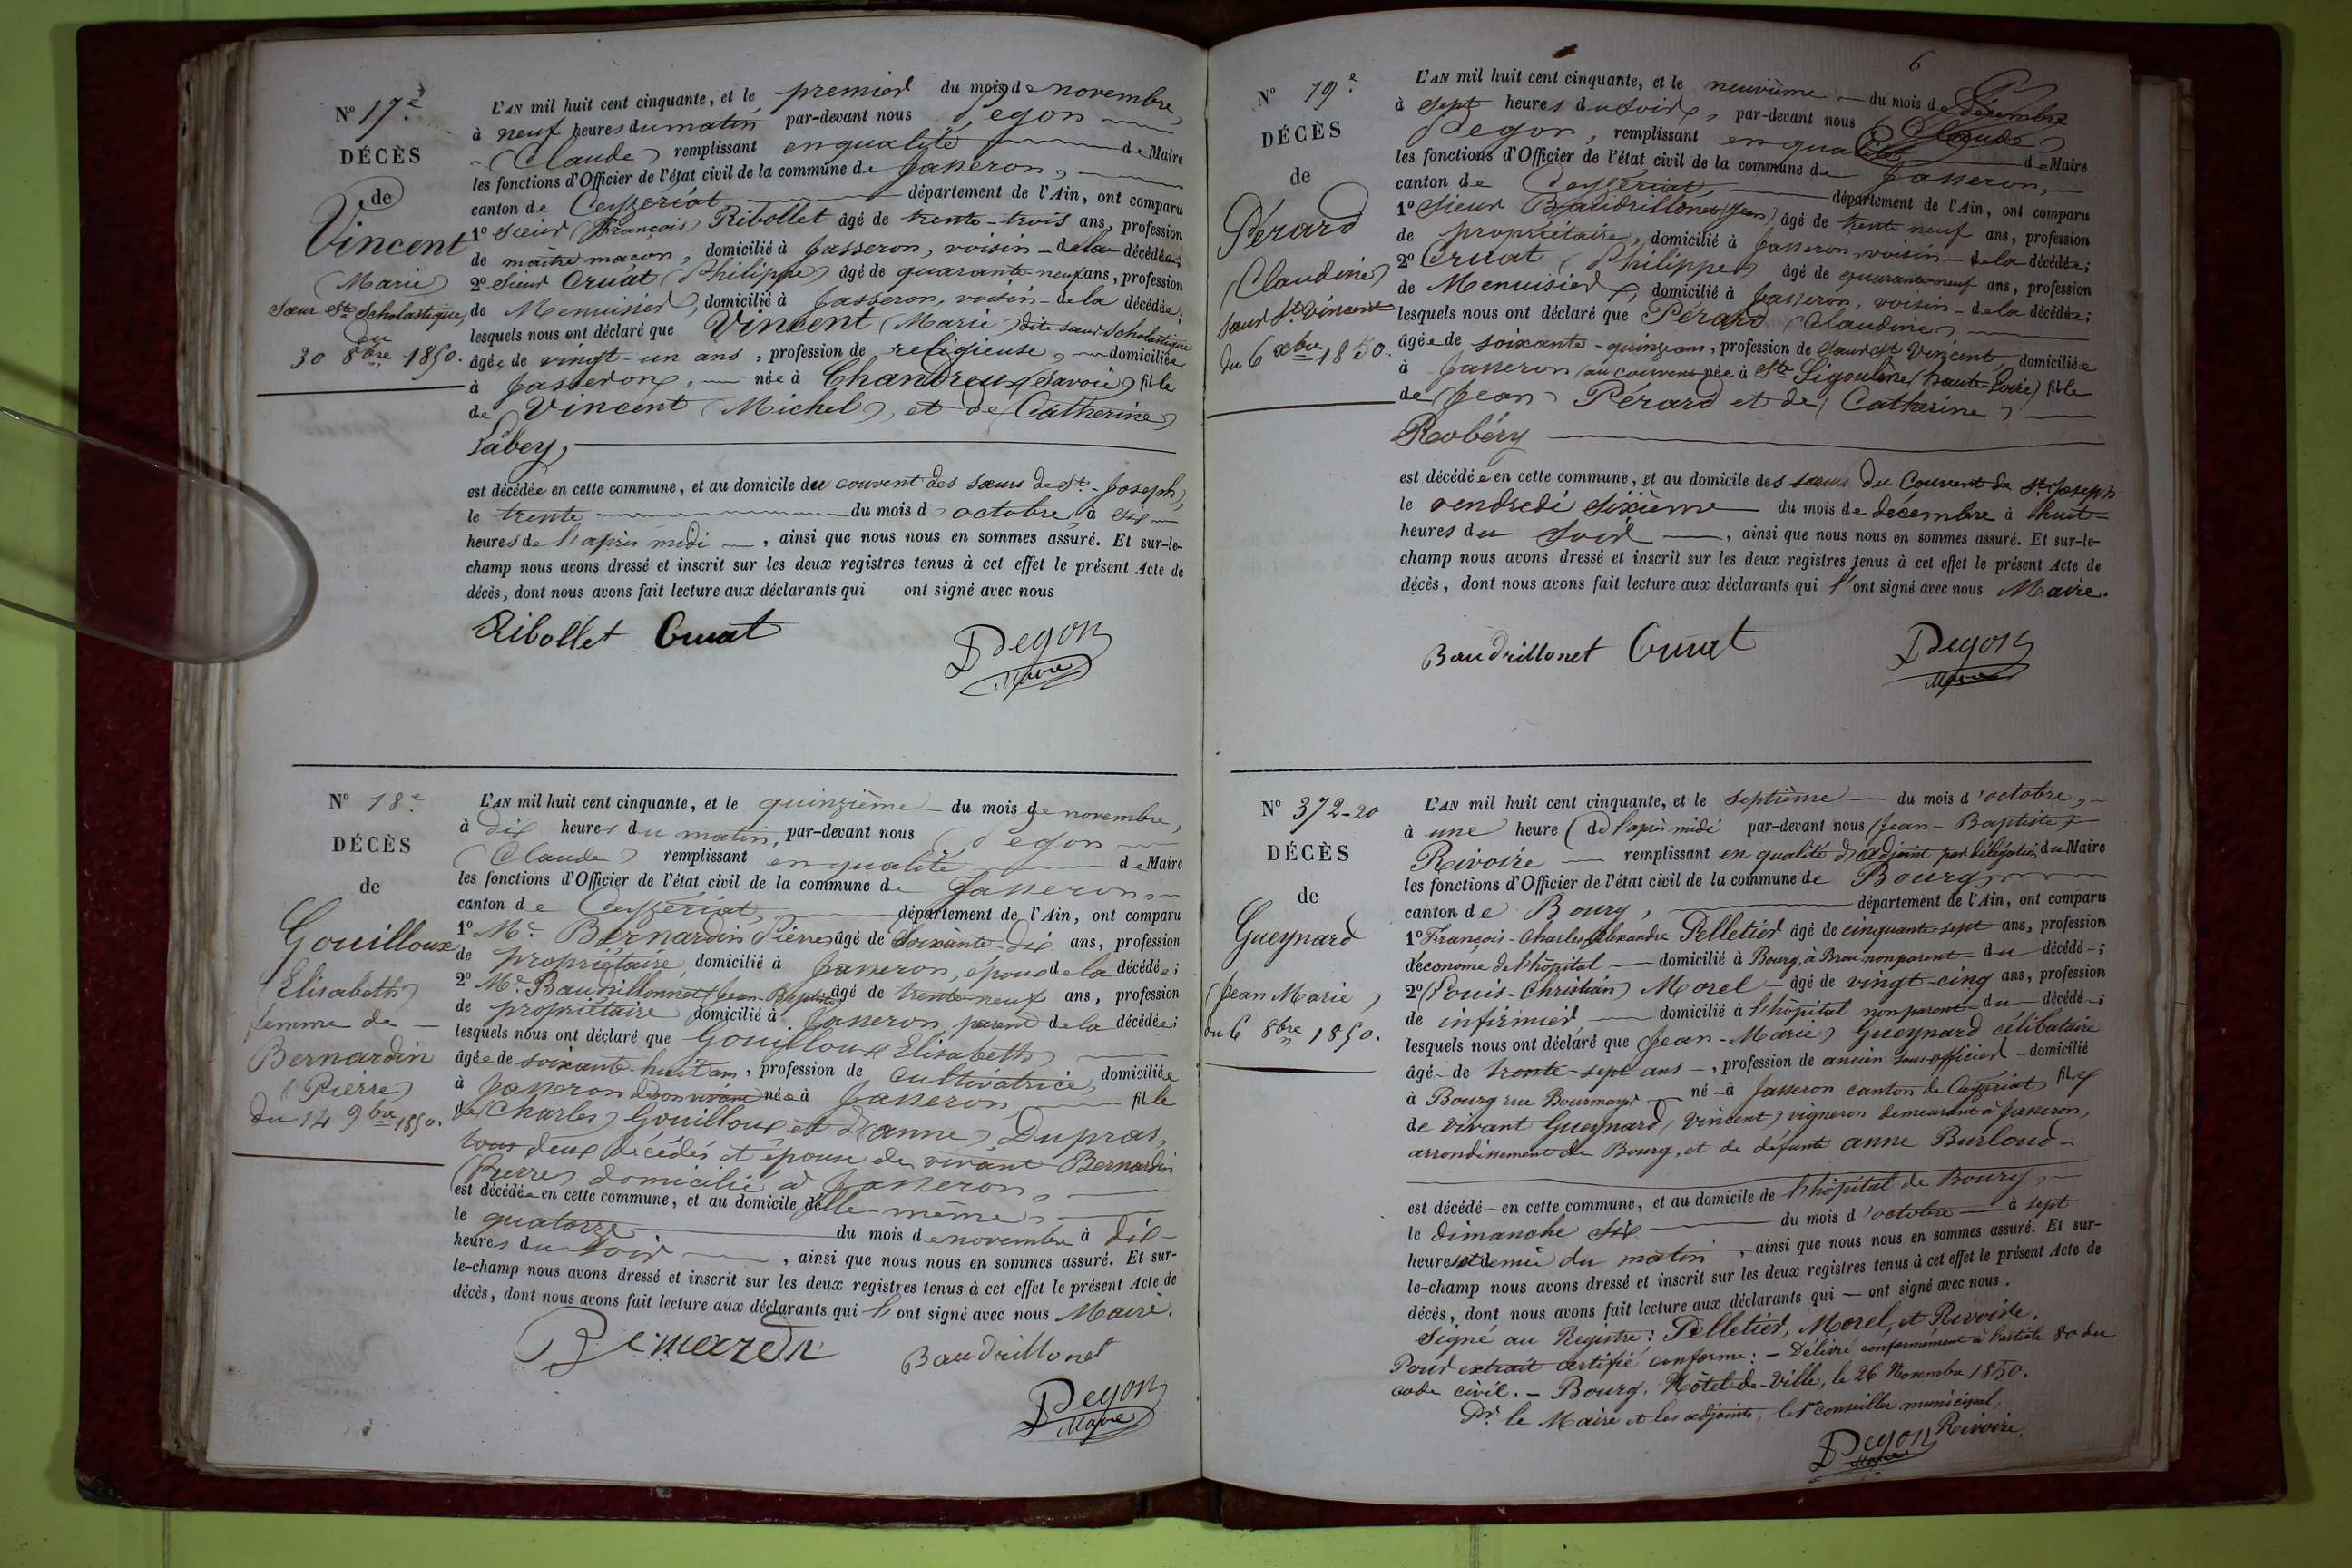 N° 17e
DÉCÈS
de
Vincent
(Marie)
Sœur Ste Scholastique,
du
30 8bre 1850.
L'AN mil huit cent cinquante, et le premier du mois de novembre,
à neuf heures du matin par-devant nous Degon
(Claude) remplissant en qualité de Maire
les fonctions d'Officier de l'état civil de la commune de Jasseron,
canton de Ceyzeriat département de l'Ain, ont comparu
1° Sieur (François) Ribollet âgé de trente-trois ans, profession
de maître maçon, domicilié à Jasseron, voisin de la décédée;
2° Sieur Cruat (Philippe) âgé de quarante-neuf ans, profession
de Menuisier, domicilié à Jasseron, voisin de la décédée;
lesquels nous ont déclaré que Vincent (Marie) dite sœur Scholastique
âgée de vingt-un ans, profession de religieuse, domiciliée
à Jasseron, née à Chandreux (Savoie) fille
de Vincent (Michel), et de (Catherine)
Pabey,
est décédée en cette commune, et au domicile du couvent des sœurs de St-Joseph,
le trente du mois d'octobre, à six
heures de l'après midi, ainsi que nous nous en sommes assuré. Et sur-le-
champ nous avons dressé et inscrit sur les deux registres tenus à cet effet le présent Acte de
décès, dont nous avons fait lecture aux déclarants qui ont signé avec nous
Ribollet Cruat Degon
Maire
N° 18e
DÉCÈS
de
Gouilloux
Elisabeth)
femme de
Bernardin
(Pierre)
du 14 9bre 1850.
L'AN mil huit cent cinquante, et le quinzième du mois de novembre,
à dix heures du matin, par-devant nous Degon
(Claude) remplissant en qualité de Maire
les fonctions d'Officier de l'état civil de la commune de Jasseron
canton de Ceyzeriat, département de l'Ain, ont comparu
1° Mr Bernardin Pierre âgé de Soixante-dix ans, profession
de propriétaire, domicilié à Jasseron, époux de la décédée;
2° Mr Baudrillonnet (Jean-Baptiste) âgé de trente neuf ans, profession
de propriétaire domicilié à Jasseron, parent de la décédée;
lesquels nous ont déclaré que Gouilloux Elisabeth)
âgée de soixante-huit ans, profession de cultivatrice, domiciliée
à Jasseron de son vivant née à Jasseron fille
de (Charles) Gouilloux et d'(anne) Dupras,
tous deux décédés et épouse de vivant Bernardin
(Pierre) domicilié à Jasseron,
est décédée en cette commune, et au domicile d'elle-même,
le quatorze du mois de novembre à dix
heures du soir, ainsi que nous nous en sommes assuré. Et sur-
le-champ nous avons dressé et inscrit sur les deux registres tenus à cet effet le présent Acte de
décès, dont nous avons fait lecture aux déclarants qui l'ont signé avec nous Maire.
Bernardin Baudrillonet
Degon
Maire
6
N° 19e
DÉCÈS
de
Pérard
(Claudine)
sœur St. Vincent
du 6 xbre 1850.
L'AN mil huit cent cinquante, et le neuvième du mois de Décembre
à sept heures du soir, par-devant nous (Claude)
Degon, remplissant en qualité de Maire
les fonctions d'Officier de l'état civil de la commune de Jasseron,
canton de Ceyzériat, département de l'Ain, ont comparu
1° Sieur Baudrillonet (Jean) âgé de trente neuf ans, profession
de propriétaire, domicilié à Jasseron voisin de la décédée;
2° Cruat (Philippe) âgé de quarante neuf ans, profession
de Menuisier, domicilié à Jasseron, voisin de la décédée;
lesquels nous ont déclaré que Pérard (Claudine)
âgée de soixante-quinze ans, profession de Sœur St Vincent, domiciliée
à Jasseron (au couvent née à Ste Sigoulène (haute Loire) fille
de (Jean) Pérard et de (Catherine)
Robéry
est décédée en cette commune, et au domicile des sœurs du Couvent de St. Joseph
le vendredi sixième du mois de décembre à huit
heures du Soir, ainsi que nous nous en sommes assuré. Et sur-le-
champ nous avons dressé et inscrit sur les deux registres tenus à cet effet le présent Acte de
décès, dont nous avons fait lecture aux déclarants qui l'ont signé avec nous Maire.
Baudrillonet Cruat Degon
Maire
N° 372-20
DÉCÈS
de
Gueynard
(Jean Marie)
du 6 8bre 1850.
L'AN mil huit cent cinquante, et le septième du mois d'octobre,
à une heure (de l'après midi par-devant nous (Jean-Baptiste)
Rivoire remplissant en qualité d'adjoint par délégation du Maire
les fonctions d'Officier de l'état civil de la commune de Bourg,
canton de Bourg, département de l'Ain, ont comparu
1° François-Charles Alexandre Pelletier âgé de cinquante sept ans, profession
d'économe de l'hôpital domicilié à Bourg, à Brou non parent du décédé;
2° (Louis-Christian) Morel âgé de vingt-cinq ans, profession
de infirmier domicilié à l'hôpital non parent du décédé;
lesquels nous ont déclaré que (Jean-Marie) Gueynard célibataire
âgé de trente-sept ans, profession de ancien sous-officier domicilié
à Bourg rue Bourmayer né à Jasseron canton de Ceyzériat fils
de vivant Gueynard (Vincent) vigneron demeurant à Jasseron,
arrondissement de Bourg, et de défunte anne Burloud
est décédé en cette commune, et au domicile de l'hôpital de Bourg,
le dimanche six du mois d'octobre à sept
heures et demie du matin, ainsi que nous nous en sommes assuré. Et sur-
le-champ nous avons dressé et inscrit sur les deux registres tenus à cet effet le présent Acte de
décès, dont nous avons fait lecture aux déclarants qui ont signé avec nous.
Signé au Registre: Pelletier, Morel, et Rivoire.
Pour extrait certifié conforme: - Délivré conformément à l'article 80 du
code civil. - Bourg. Hôtel-de-Ville, le 26 Novembre 1850.
Pr. le Maire et les adjoints, le 1er conseiller municipal,
Degon Rivoire.
Maire